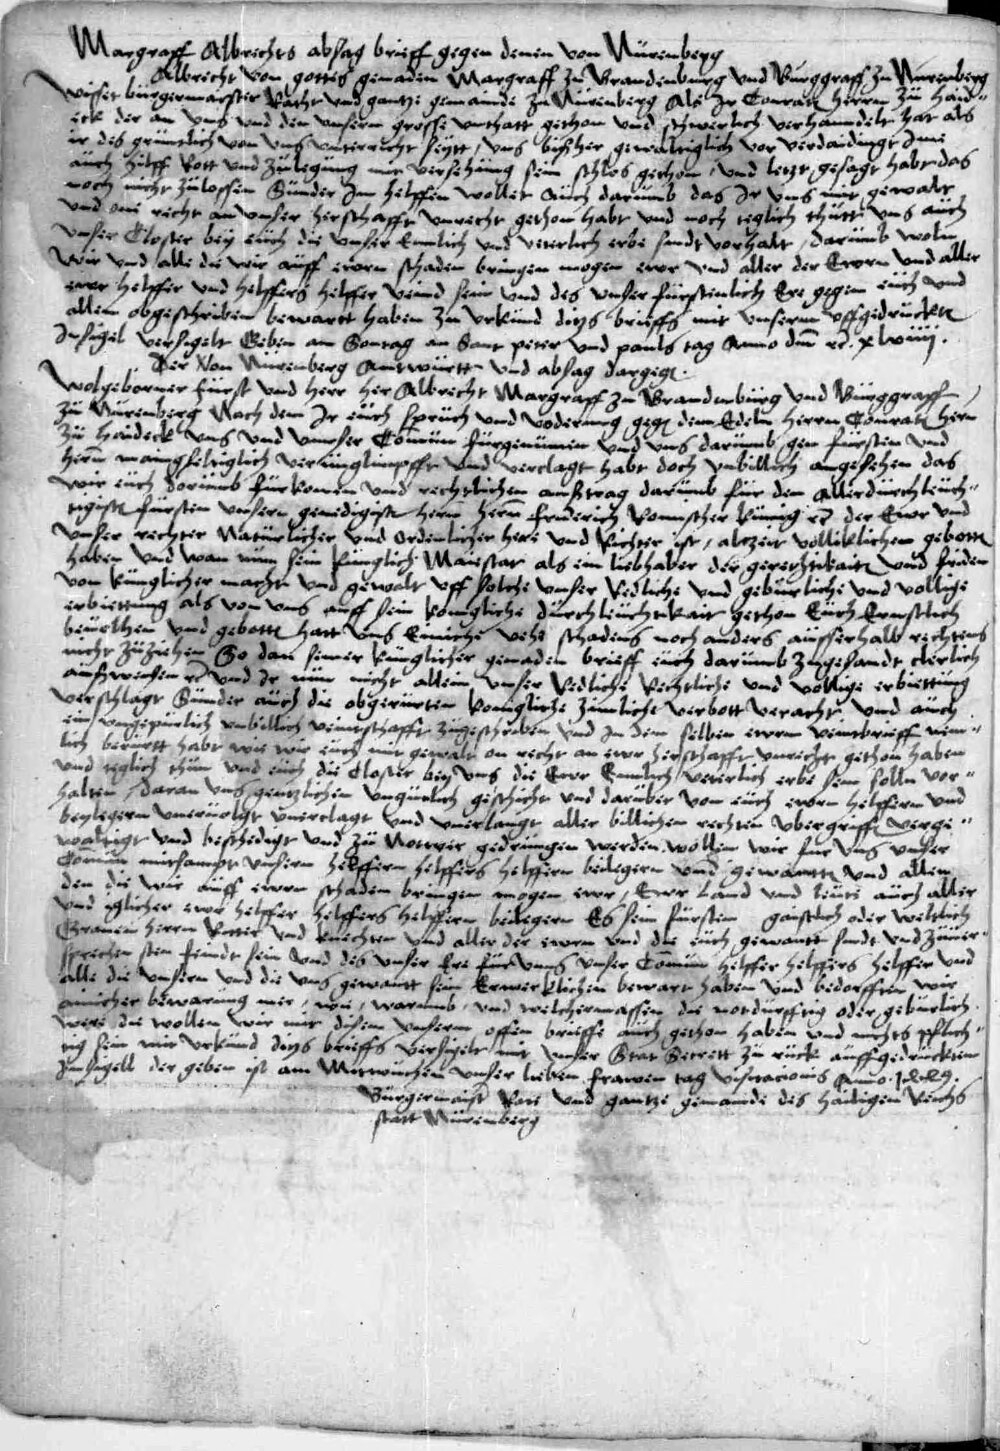 Margraff Albrechts absag brieff gegen denen von Nürenberg
Albrecht von gottes genaden Margraff zu Brandenburg und Burggraff zu Nurenberg
wisset bürgermaister Racht und gantze gemainde zu Nürenberg Als Ir Conratt herrn zu Haid-
eck der an uns und den unsern grosse unthatt gethon und schwerlich verhanndelt hat als
ir des gruntlich von uns unterricht seytt, uns bißher gewaltiglich vor verdaidingt Ime
auch hilff Rott und zulegung mit versehung sein schlos gethon, und letzt gesagt habt das
noch nicht zulossen Sünder Im helffen wollet Auch darumb das Ir uns mit gewalt
und one recht an unser herschafft unrecht gethon habt und noch teglich thutt uns auch
unser Closter bey euch die unser Ennlich und veterlich erbe sindt vorhalt, darumb woln
wir und alle die wir auff ewrn schaden bringen mogen ewr und aller der Ewrn und aller
ewr helffer und helffers helffer veind sein und des unser fürstenlich Ere gegen euch und
allen obgeschriben bewartt haben zu urkund ditzs brieffs mit unserm uffgedruckten
Insigel versigelt Geben am Sontag an Sant peter und pauls tag Anno dm̄ rc. xlviiij.
Der Von Nürenberg Antwurtt und absag dargegē.
Wolgeborner fürst und herr her Albrecht Margraff zu Brandenbürg und Bürggraff
zu Nürenberg Nach dem Ir euch spruch und vodernng gegē dem Edeln herrn Conratt herrn
zu Haideck uns und unser Comūn fürgenumen und uns darumb gen fursten und
herrn mainigfeltiglich verunglimpfft und verclagt habt doch unbillich angesehen das
wir euch dorumb furkomen und rechtlichen außtrag darumb fur dem Allerdurchleuch-
tigisten fürsten unsern genedigisten hern hern friderich Romischer kunig rc der Ewr und
unser rechter Naturlicher und ordenlicher here und Richter ist, altzeit volliklichen gebotten
haben und wan nun sein kunglich Maiestat als ein liebhaber der gerechtikaitt und friden
von kunglicher macht und gewalt uff solche unser Redliche und geburliche und vollige
erbiettung als von uns auff sein konigliche durchleuchtikait gethon Euch Ernstlich
bevelhen und gebotten hatt uns Einiche vehe schadens noch anders ausserhalb rechtens
nicht zuziehen So dan seiner künglicher genaden brieff euch darumb zugesandt clerlich
außweisen rc und Ir nun nicht allein unser Redliche Rechtliche und vollige erbiettung
verschlagt Sunder auch die obgerurten konigliche zimliche verbott veracht und auch
ein ungepurlich unbillich veintschafft zugeschriben und In dem selben ewrm veintbrieff nem-
lich berürtt habt wie wir euch mit gewalt on recht an ewr herschafft unrecht gethon haben
und teglich thun und euch die Closter bey uns die Ewr Ennlich veterlich erbe sein solln vor-
halten, daran uns gentzlichen ungütlich geschicht und darüber von euch ewrn helffern und
beylegern unervolgt unerclagt und unerlangt aller billichen rechten Ubergriffen verge-
waltigt und beschedigt und zu Notwer gedrungen werden wollen wir fur uns unser
Comūn mitsampt unsern helffern helffers helffern beilegern und gewantten und allen
den die wir auff ewrn schaden bringen mogen ewr, Ewr Land und leute auch aller
und iglicher ewr helffer helffers helffern beilegern Es sein fürsten gaistlich oder weltlich
Graven herrn Ritter und knechten und aller der ewrn und die euch gewantt sindt und zuver-
sprechen sten feindt sein und des unser Ere für uns unser Comūn helffer helffers helffer und
alle die unsern und die uns gewantt sein Erwerklichen bewart haben und bedorfften wir
ainicher bewarung mer, wie, warumb, und welchermassen die notdurfftig oder geburlich
were die wollen wir mit disem unserm offen brieffe auch gethon haben und nichts pflich-
tig sein mit urkund ditzs brieffs versigelt mit unser Stat Secrett zu ruck auffgedruckten
Insigell der geben ist am Mittwuchen unser lieben frawen tag visitacionis Anno. 1449.
Bürgermaist Rate und gantze gemainde des hailigen Reichs
statt Nürenberg